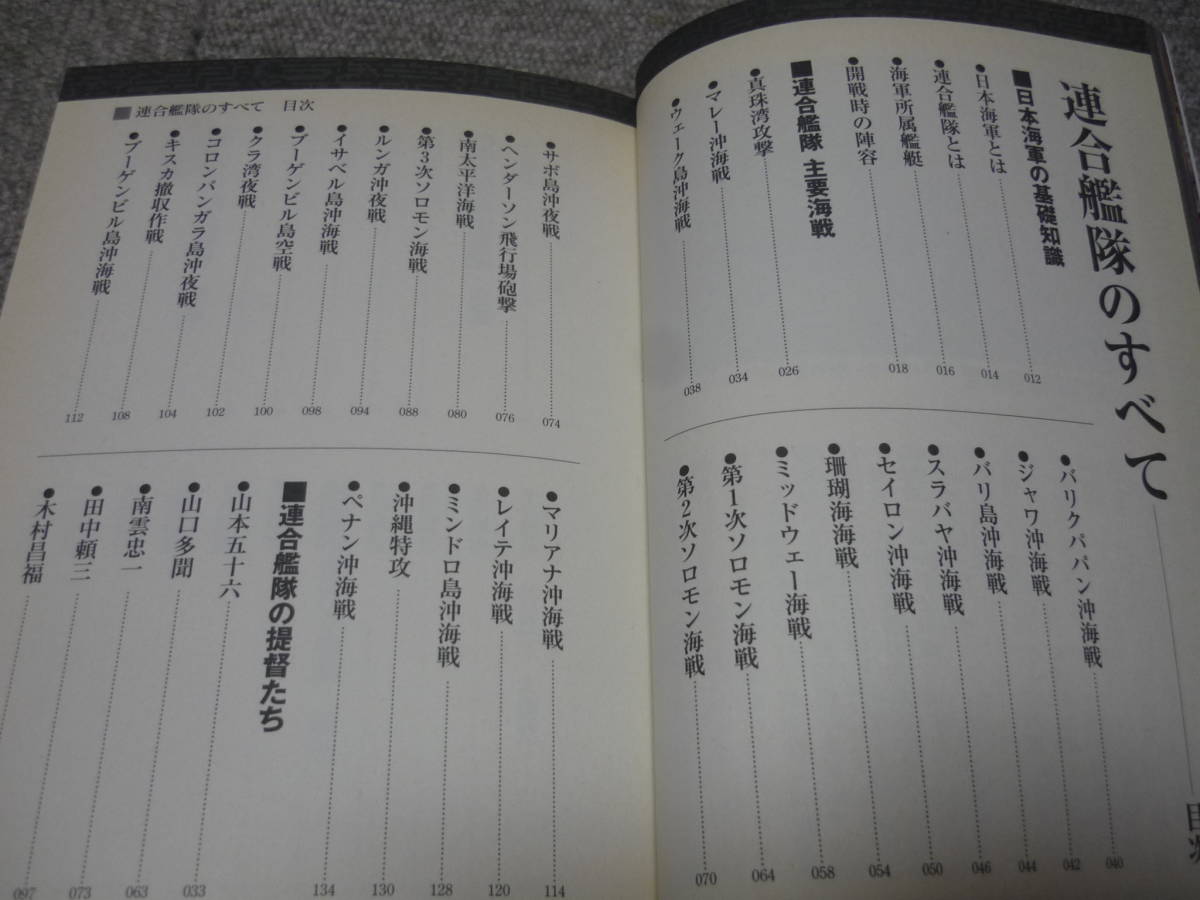 連合艦隊のすべて
■日本海軍の基礎知識
●日本海軍とは 012
●連合艦隊とは 014
●海軍所属艦艇 016
●開戦時の陣容 018
■連合艦隊 主要海戦
●真珠湾攻撃 026
●マレー沖海戦 034
●ウェーク島沖海戦 038
●バリクパパン沖海戦 040
●ジャワ沖海戦 042
●バリ島沖海戦 044
●スラバヤ沖海戦 046
●セイロン沖海戦 050
●珊瑚海海戦 054
●ミッドウェー海戦 058
●第1次ソロモン海戦 064
●第2次ソロモン海戦 070
■連合艦隊のすべて 目次
●サボ島沖夜戦 074
●ヘンダーソン飛行場砲撃 076
●南太平洋海戦 080
●第3次ソロモン海戦 088
●ルンガ沖夜戦 094
●イサベル島沖海戦 098
●ブーゲンビル島空戦 100
●クラ湾夜戦 102
●コロンバンガラ島沖夜戦 104
●キスカ撤収作戦 108
●ブーゲンビル島沖海戦 112
●マリアナ沖海戦 114
●レイテ沖海戦 120
●ミンドロ島沖海戦 128
●沖縄特攻 130
●ペナン沖海戦 134
■連合艦隊の提督たち
●山本五十六 033
●山口多聞 063
●南雲忠一 073
●田中頼三 097
●木村昌福